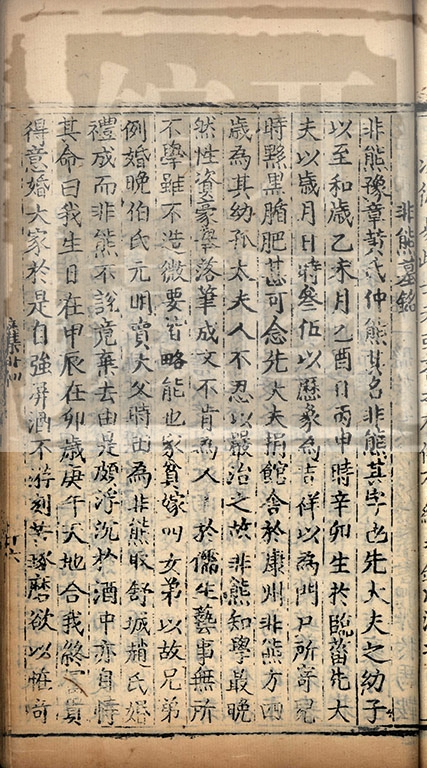 非熊墓銘
非熊豫章黄氏仲熊其名非熊其字也先大夫之幼子
以至和歲乙未月乙酉日丙申時辛卯生於臨菑先大
夫以歲月日時叄伍以曆象爲吉祥以為門戶所寄兒
時黟黑腯肥甚可念先大夫捐館舍於康州非熊方両
歲為其幼孤太夫人不忍以嚴治之故非熊知學最晚
然性資豪舉落筆成文不肯為人下於儒生藝事無所
不學雖不造微要皆略能也家貧嫁叫女弟以故兄弟
例婚晚伯氏元明賣大父時田為非熊取舒城趙氏婚
禮成而非熊不說竟棄去由是頗浮沉於酒中亦自恃
其命曰我生日在甲辰在卯歲庚午天地合我終富貴
得意婚大家於是自強屏酒不游刻苦琢磨欲以恠奇